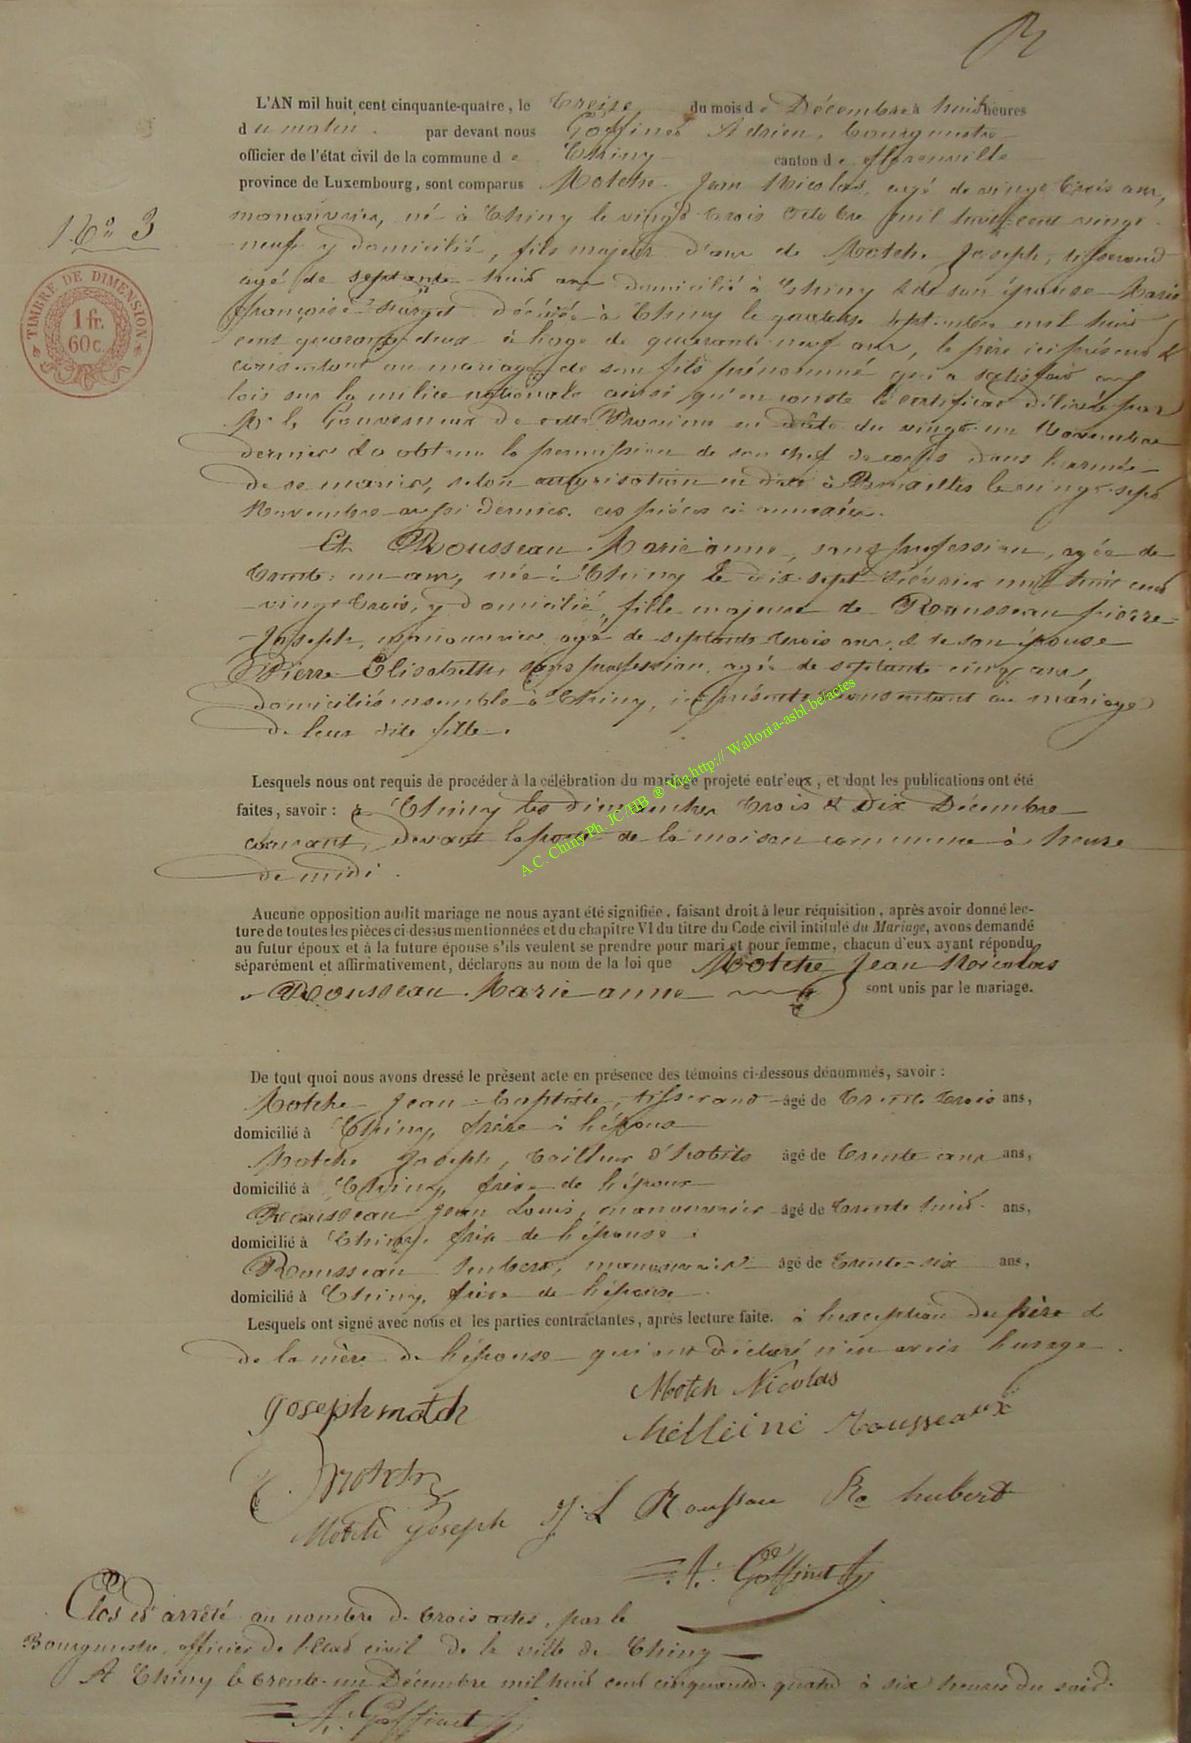 L'AN mil huit cent cinquante-quatre, le treize du mois de Décembre à huit heures
du matin. par devant nous Goffinet Adrien, bourgmestre
officier de l'état civil de la commune de Chiny canton de florenville
province de Luxembourg, sont comparus Motche Jean Nicolas, agé de vingt trois ans,
manouvrier, né à Chiny le vingt trois Octobre mil huit cent vingt
N° 3
neuf y domicilié, fils majeur d'ans de Motche Joseph, tisserand
TIMBRE DE DIMENSION
1 fr.
60 c.
agé de septante huit ans domicilié à Chiny & de son épouse Marie
françoise décédée à Chiny le quatorze septembre mil huit
cent quarante deux à l'age de quarante neuf ans, le père ici présent &
consentant au mariage de son fils prénommé qui a satisfait aux
lois sur la milice nationale ainsi qu'en conste le certificat délivré par
Mr le Gouverneur de cette Province en date du vingt un Novembre
dernier & a obtenu la permission de son chef de corps dans l'armée
de se marier, selon autorisation en date à Bruxelles le vingt sept
Novembre aussi dernier. ces pièces ci annexées.
Et Rousseau Marie anne, sans profession, agée de
trente un ans, née à Chiny le dix sept février mil huit cent
vingt trois, y domicilié, fille majeure de Rousseau pierre
Joseph, manouvrier agé de septante trois ans & de son épouse
Pierre Elisabeth, sans profession, agée de septante cinq ans,
domiciliés ensemble à Chiny, ici présents & consentant au mariage
de leur dite fille.
Lesquels nous ont requis de procéder à la célébration du mariage projeté entr'eux, et dont les publications ont été
faites, savoir : à Chiny les dimanches trois & dix Décembre
courant, devant la porte de la maison commune à heure
de midi.
A.C. Chiny Ph. JC/HB ® Via http:// Wallonia-asbl.be/actes
Aucune opposition audit mariage ne nous ayant été signifiée, faisant droit à leur réquisition, après avoir donné lec-
ture de toutes les pièces ci-dessus mentionnées et du chapitre VI du titre du Code civil intitulé du Mariage, avons demandé
au futur époux et à la future épouse s'ils veulent se prendre pour mari et pour femme, chacun d'eux ayant répondu
séparément et affirmativement, déclarons au nom de la loi que Motche Jean Nicolas
& Rousseau Marie anne sont unis par le mariage.
De tout quoi nous avons dressé le présent acte en présence des témoins ci-dessous dénommés, savoir :
Motche Jean Baptiste, tisserand âgé de trente trois ans,
domicilié à Chiny, frère à l'époux
Motche Joseph, tailleur d'habits âgé de trente ans ans,
domicilié à Chiny, frère de l'époux
Rousseau Jean Louis, manouvrier âgé de trente huit ans,
domicilié à Chiny, frère de l'épouse.
Rousseau hubert, manouvrier âgé de trente-six ans,
domicilié à Chiny, frère de l'épouse.
Lesquels ont signé avec nous et les parties contractantes, après lecture faite. à l'exception du père &
de la mère de l'épouse qui ont déclaré n'en avoir l'usage.
Motch Nicolas
Joseph motch
Melleine Rousseaux
Motch Joseph J. L Rousseau Ro hubert
A. Goffinet
Clos et arrêté au nombre de trois actes, par le
Bourgmestre, officier de l'Etat civil de la ville de Chiny
A Chiny le trente-un Décembre mil huit cent cinquante quatre à six heures du soir.
A. Goffinet